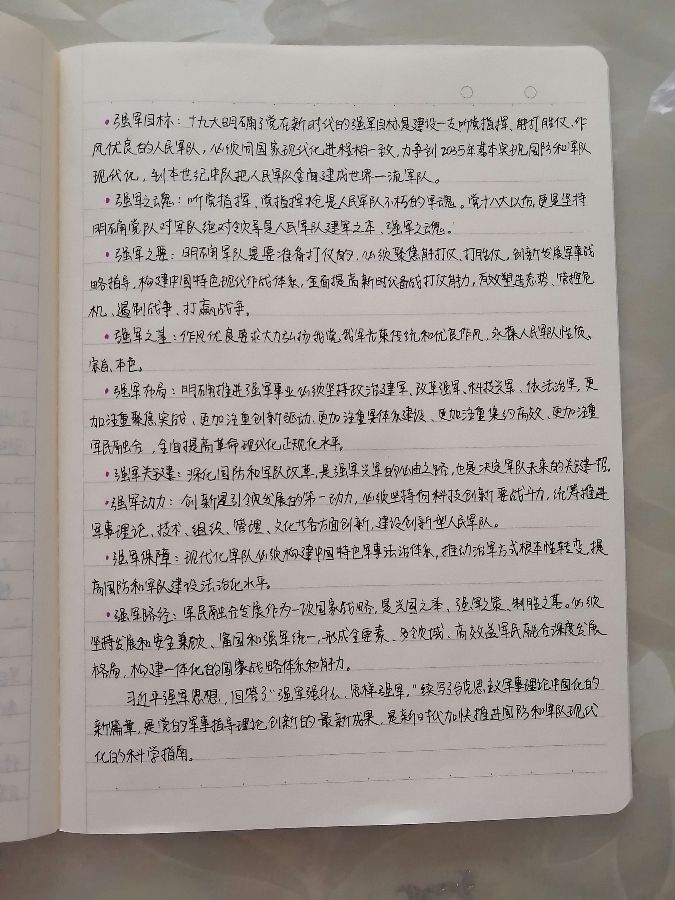 •强军目标：十九大明确了党在新时代的强军目标是建设一支听党指挥、能打胜仗、作
风优良的人民军队，必须同国家现代化进程相一致，力争到2035年基本实现国防和军队
现代化，到本世纪中叶把人民军队全面建成世界一流军队。
•强军之魂：听党指挥，党指挥枪是人民军队不朽的军魂。党十八大以后，更是坚持
明确党队对军队绝对领导是人民军队建军之本、强军之魂。
•强军之要：明确军队是要准备打仗的，必须聚焦能打仗、打胜仗，创新发展军事战
略指导，构建中国特色现代作战体系，全面提高新时代备战打仗能力，有效塑造态势、管控危
机、遏制战争、打赢战争。
•强军之基：作风优良要求大力弘扬我党我军光荣传统和优良作风，永葆人民军队性质、
宗旨、本色。
•强军布局：明确推进强军事业必须坚持政治建军、改革强军、科技兴军、依法治军，更
加注重聚焦实战、更加注重创新驱动、更加注重体系建设、更加注重集约高效、更加注重
军民融合，全面提高革命现代化正规化水平。
•强军关键：深化国防和军队改革，是强军兴军的必由之路，也是决定军队未来的关键一招。
•强军动力：创新是引领发展的第一动力，必须坚持向科技创新要战斗力，统筹推进
军事理论、技术、组织、管理、文化等各方面创新，建设创新型人民军队。
•强军保障：现代化军队必须构建中国特色军事法治体系，推动治军方式根本性转变，提
高国防和军队建设法治化水平。
•强军路径：军民融合发展作为一项国家战略，是兴国之举、强军之策、制胜之基。必须
坚持发展和安全兼顾、富国和强军统一，形成全要素、多领域、高效益军民融合深度发展
格局，构建一体化的国家战略体系和能力。
习近平强军思想，回答了“强军强什么、怎样强军，”续写了马克思主义军事理论中国化的
新篇章，是党的军事指导理论创新的最新成果，是新时代加快推进国防和军队现代
化的科学指南。